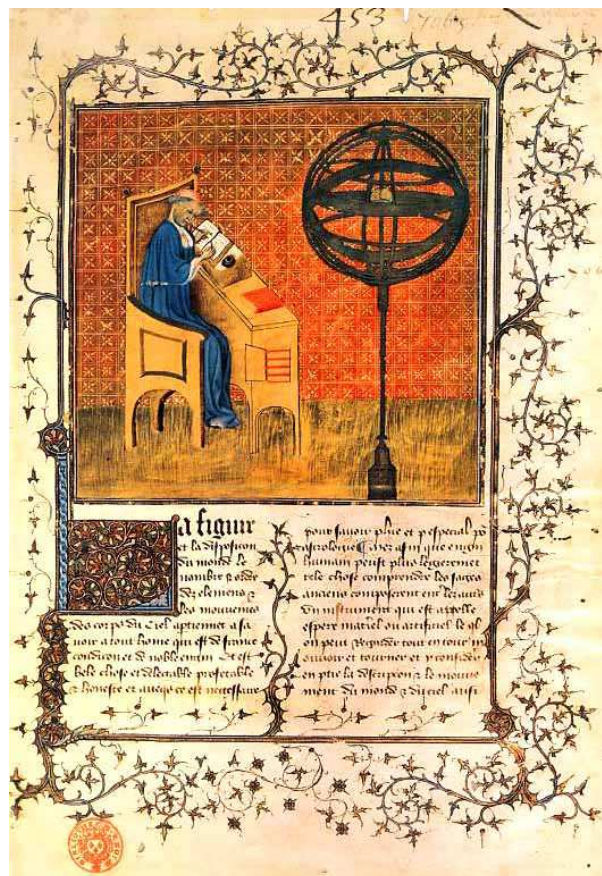 453 7065
La figure
et la disposicion
du monde le
nombre & ordre
des elemens &
les mouvemens
des corps du Ciel aptiennent a sa
voir a tout home qui est de france
condicion et de noble engin Et est
bele chose et delectable profetable
& honeste et aveqs ce est necessaire
pour savoir phie et p especial po
astrologie Quer afin que engin
humain peust plus legierement
tele chose comprendre les sages
anciens composerent
un instrument qui est appelle
espere materiel ou artificiel le ql
on peut regarder tout entour m
ouvoir et tourner et y considerer
en ptie la descripcion & le mouve
ment du monde & du ciel aussi